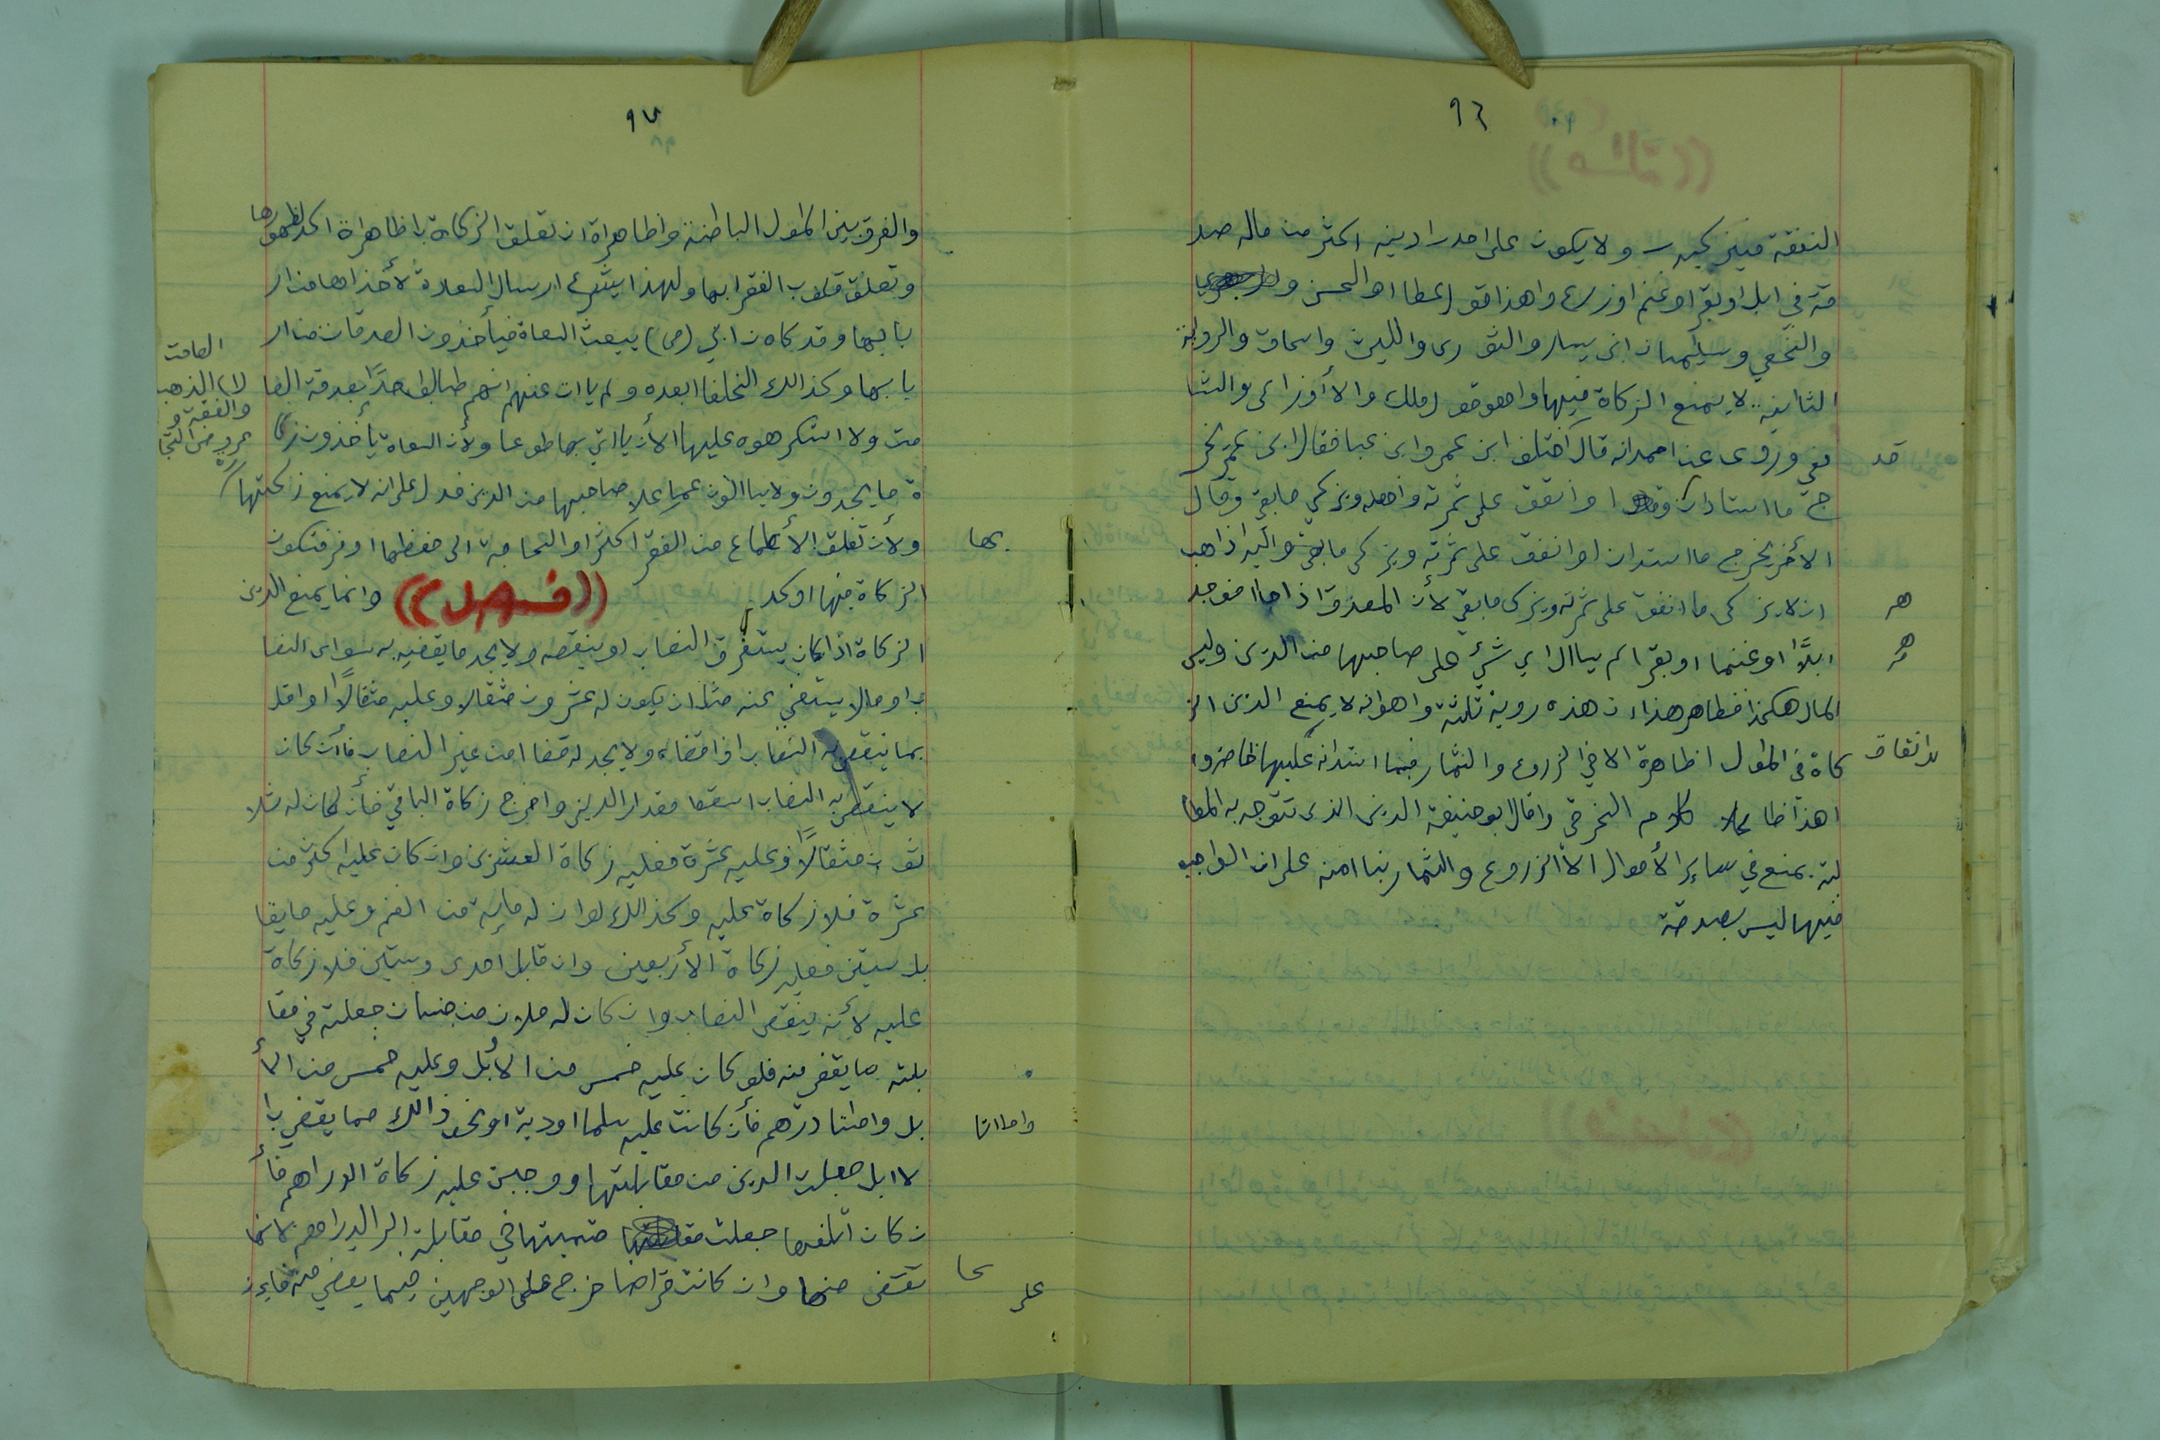 ٩٦
النفقة فيزكيه ولا يكون على احد دينه اكثر من ماله صد
قة في ابل او بقر او غنم او زرع واهذا قول عطا او الحسن و
والنخعي وسليمان ابن يسار والثوري والليث واسحاق والرواية
الثانية .. لا يمنع الزكاة فيها واهو قول ملك والأوزاعي والشا
فعي وروى عن احمد انه قال قد اختلف ابن عمر وابن عبا فقال ابن عمر يخر
ج ما استادان او انفق على ثمرته واهله ويزكي مابقي وقال
الأخر يخرج ما استدان او انفق على ثمرته ويزكي مابقي واليه اذاهب
ان لا يزكي ما انفق على ثمرته ويزكي مابقي لأن المصدق اذا جاا فوجد
ابلاً او غنما او بقرا لم يساال اي شيئ على صاحبها من الدين وليس
المال هكذا فظاهر هذا ان هذه رواية ثلثة واهوانه لا يمنع الدين الز
كاة في الموال اظاهرة الا في الزروع والثمار فيما استدانه للانفاق عليها خاضة و
اهذا ظا كلام الخرقي واقال بو حنيفة الدين الذي تتوجه به المطا
لبة يمنع في سايرالأموال الا الزروع والثمار بناامنه على ان الواجب
فيها ليس بصدقة
٩٧
والفرق بين الموال الباطنة واظاهراة ان تعلق الزكاة باظاهراة اكد لظهورها
وتعلق قلوب الفقرابها ولهذا يشرع ارسال السعادة لأخذاها من ار
بابها وقد كاه ن ابي (ص) يبعث السعاة فيأخذون الصدقات من ار
بابها وكذالك الخلفا ابعده ولم ياات عنهم انهم طالبوا حدًا بصدقة الصا
مت ولا استكرهوه عليها الأن ياايتي بها طوعا ولأن السعاة يأخذون زكا
ة ما يجدون ولا يساالون عما علا صاحبها من الدين فدل على انه لا يمنع زكتها
ولأن تعلق الأطماع من الفقرا بها اكثر او الحاجة الى حفظها اوفر فتكون
الزكاة فيها اوكد ((فصل)) وانما يمنع الدين
الزكاة اذا كان يستغرق النصاب او ينقصه ولا يجد ما يقضيه به سواى النصا
ب او مالا يستغني عنه مثل ان يكون له عشرون مثقالا وعليه مثقالًا او اقل
مما ينقص به النصاب اذاقضاه ولا يجد له قضاا من غير النصاب فأن كان
لا ينقص به النصاب اسقط مقدار الدين واخرج زكاة الباقي فأن كان له ثلا
ثون مثقالًا وعليه عشرة فعليه زكاة العشرين وان كان عليه اكثر من
عشرة فلا زكاة عليه وكذالك لوان له ماية من الغنم وعليه مايقا
بل ستين فعليه زكاة الأربعين وان قابل احدى وستين فلا زكاة
عليه لأنه ينقص النصاب وان كان له مالان من جنسان جعلته في مقا
بلته ما يقضي منه فلو كان عليه خمس من الأبل وعليه خمس من الأ
بل وامئتا درهم فأن كانت عليه سلما اودية اونحو ذالك مما يقضي با
لا ابل جعلت الدين من مقابلتها ووجبت عليه زكاة الدراهم فأ
ن كان اتلفها جعلت قيمتها في مقابلة الدراهم لانها
تقضى منها وان كانت قراضا خرج على الوجهين فيما يقضي منه فاءن
الصامت
لا) الذهب
والفضة و
عروض التجا
رة
قد
هر
هر
للانفاق
بها
وامااتا
على